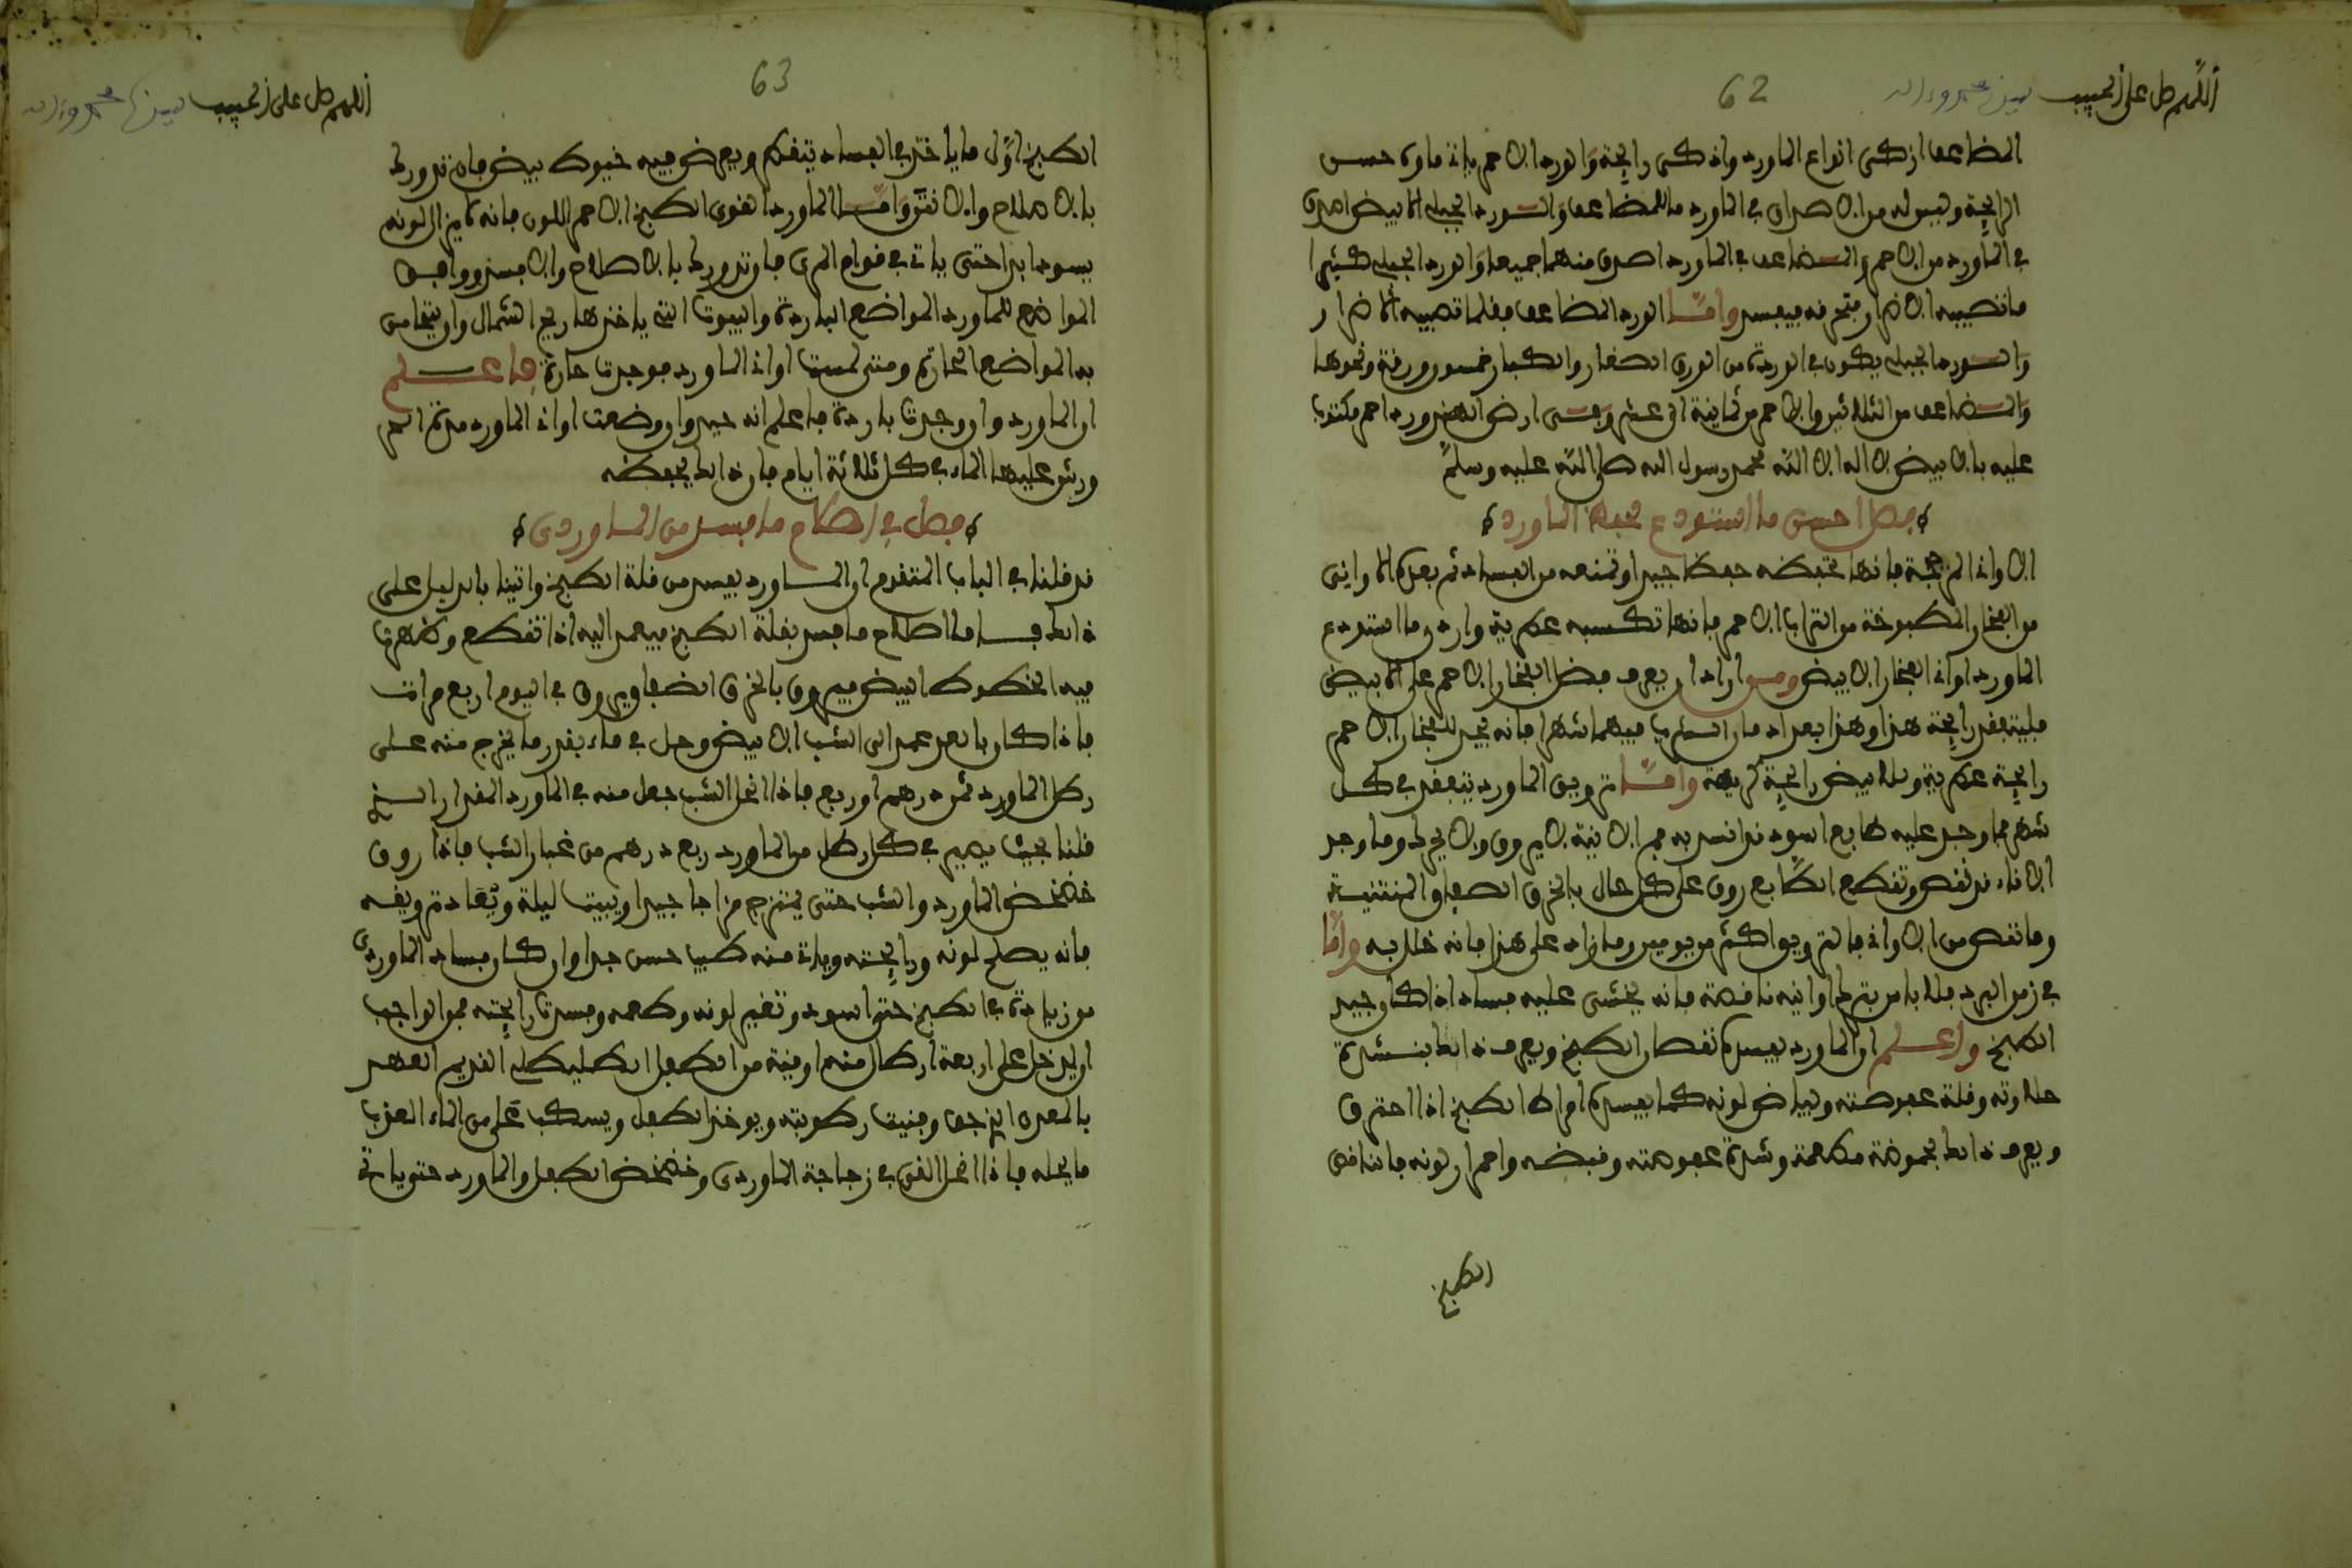 62
اللهم صل على الحبيب سيدنا محمد وءاله
المضاعف ازكى انواع الماورد واذكى رايحة والورد الاحمر ياتي ماوه حسن
الرايحة وليس له من الاصراف في الماورد ما للمضاعف والورد الجبلي الابيض اصرف
في الماورد من الاحمر والمضاعف في الماورد اصرف منهما جميعا والورد الجبلي كثيرا
ما تصيبه الاضرار فتحرفه فيفسد واما الورد المضاعف فقلما تصيبه الاضرار
والورد الجبلي يكون في الوردة من الورق الصغار والكبار خمسون ورقة ونحوها
والمضاعف من الثلاثين والاحمر من ثمانية الى عشر وفى ارض الهند ورد احمر مكتوب
عليه بالابيض لا اله الا الله محمد رسول الله صلى الله عليه وسلم
فصل احسن ما استودع فيه الماورد
الاواني المزججة فانها تحفظه حفظا جيدا وتمنعه من الفساد ثم بعده الاواني
من الفخار المطبوخة من التراب الاحمر فانها تكسبه عطرية واردى ما استودع
الماورد اواني الفخار الابيض ومن اراد ان يعرف فضل الفخار الاحمر على الابيض
فليتفقد رايحة هذا وهذا بعد ادمان الشرب فيهما شهرا فانه يجد للفخار الاحمر
رايحة عطرية وللابيض رايحة كريهة واما ترويق الماورد يتفقد في كل
شهر فما وجد عليه طابع اسود قد انسد به فم الانية لا يروق ولا يحرك وما وجد
الاناء قد نقص وتقطع الطابع روق على كل حال بالخرق الصفاق المتنية
وما نقص من الاواني فالترويق اكثر من يومين وما زاد على هذا فانه خلل به واما
في زمن البرد فلا باس بترك اوانيه ناقصة فانه لا يخشى عليه فساد اذا كان جيد
الطبخ واعلم ان الماورد يفسده نقصان الطبخ ويعرف ذالك بشدة
حلاوته وقلة عفوصته وبياض لونه كما يفسده افراط الطبخ اذا احترق
ويعرف ذالك بحموضة مطعمه وشدة عفوصته وقبضه واحمرار لونه فالناقص
الطبخ
63
اللهم صل على الحبيب سيدنا محمد وءاله
الطبخ اول ما ياخذ في الفساد يتغير ويعرض فيه خيوط بيض فان تدورك
بالاصلاح والا نتن واما الماورد القوى الطبخ الاحمر اللون فانه لا يزال لونه
يسود ابدا حتى ياتي في قوام المرى فان تدورك بالاصلاح والا فسد ووافق
المواضع للماورد المواضع الباردة والبيوت التي ياخذها ريح الشمال وان يتحامى
به المواضع الحارة ومتى لمست اواني الماورد فوجدت حارة فاعلم
ان الماورد وان وجدت باردة فاعلم انه جيد وان وضعت اواني الماورد مدة الحر
ورش عليها الماء في كل ثلاثة ايام فان ذالك يحفظه
فصل في اصلاح ما فسد من الماوردى
قد قلنا في الباب المتقدم ان الماورد يفسد من قلة الطبخ واتينا بالدليل على
ذالك فاما اصلاح ما فسد بقلة الطبخ فيعمد اليه اذا تقطع وظهرت
فيه الخطوط البيض فيروق بالخرق الضعاف ويروق في اليوم اربع مرات
فاذا كان بالعد عمد الى الشب الابيض وحل في ماء بقدر ما يخرج منه على
رطل الماورد ثمن درهم او ربع فاذا انحل الشب جعل منه في الماورد المقدار الذي
قلنا بحيث يصير في كل رطل من الماورد ربع درهم من غبار الشب فاذا روق
خضخض الماورد والشب حتى يمتزج مزاجا جيدا ويبيت ليلة ويعاد ترويقه
فانه يصلح لونه ورايحته وياتي منه طيب حسن جدا وان كان فساد الماوردى
من زيادة في الطبخ حتى اسود وتغير لونه وطعمه وفسدت رايحته فمن الواجب
ان يدخل على اربعة ارطال منه اوقية من الطفل الطليطلي القديم العهد
بالمعدن الذي جف وفنيت رطوبته ويوخذ الطفل ويسكب على من الماء العذب
ما يحله فاذا انحل القي في زجاجة الماوردى وخضخض الطفل والماورد حتى ياتي